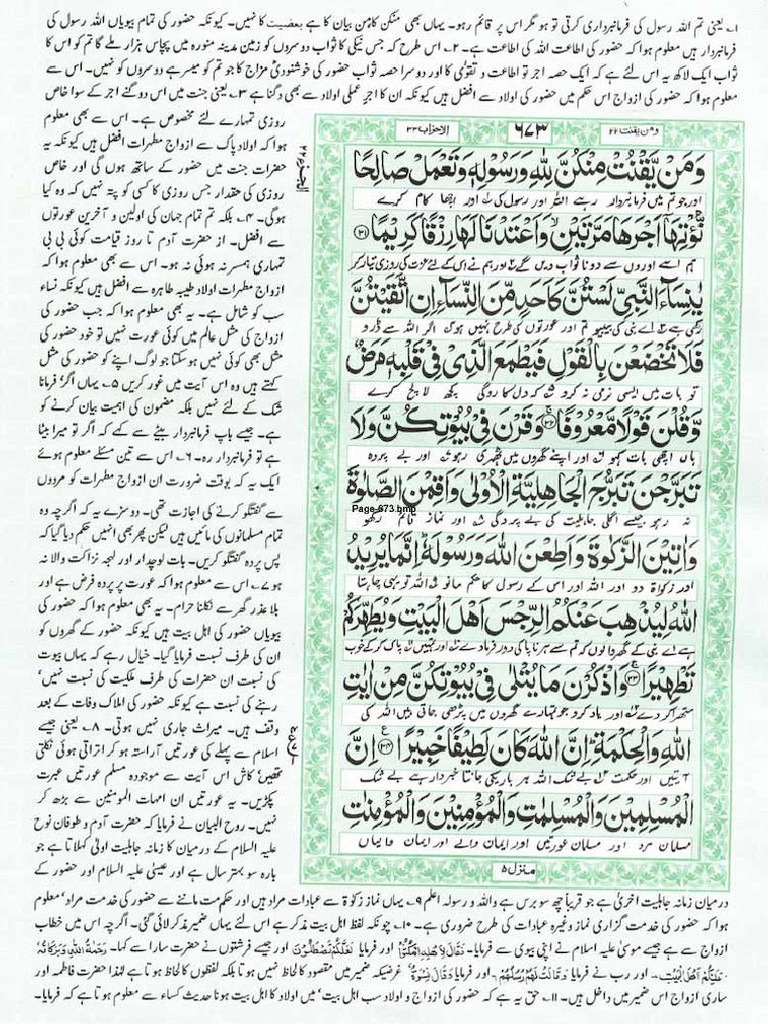 ۱؎ یعنی تم اللہ رسول کی فرمانبرداری کرتی تو ہو مگر اس پر قائم رہو۔ یہاں بھی منکن کا من بیان کا ہے بعضیت کا نہیں۔ کیونکہ حضور کی تمام بیویاں اللہ رسول کی
فرمانبردار ہیں معلوم ہوا کہ حضور کی اطاعت اللہ کی اطاعت ہے۔ ۲؎ اس طرح کہ جس نیکی کا ثواب دوسروں کو زمین مدینہ منورہ میں پچاس ہزار ملے گا تم کو اس کا
ثواب ایک لاکھ یہ اس لئے ہے کہ ایک حصہ اجر تو اطاعت و تقویٰ کا اور دوسرا حصہ ثواب حضور کی خوشنودی مزاج کا جو تم کو میسر ہے دوسروں کو نہیں۔ اس سے
معلوم ہوا کہ حضور کی ازواج اس حکم میں حضور کی اولاد سے افضل ہیں کیونکہ ان کا اجر عملی اولاد سے بھی دگنا ہے ۳؎ یعنی جنت میں اس دو گنے اجر کے سوا خاص
ومن یقنت ۲۲
۶۷۳
الاحزاب ۳۳
وَمَنْ يَّقْنُتْ مِنْكُنَّ لِلّٰهِ وَرَسُوْلِهٖ وَتَعْمَلْ صَالِحًا
اور جو تم میں فرمانبردار رہے اللہ اور رسول کی اور اچھا کام کرے
نُّؤْتِهَآ اَجْرَهَا مَرَّتَيْنِ وَاَعْتَدْنَا لَهَا رِزْقًا كَرِيْمًا ﴿۳۱﴾
ہم اسے اوروں سے دونا ثواب دیں گے اور ہم نے اس کے لئے عزت کی روزی تیار کر
يٰنِسَآءَ النَّبِيِّ لَسْتُنَّ كَاَحَدٍ مِّنَ النِّسَآءِ اِنِ اتَّقَيْتُنَّ
رکھی ہے اے نبی کی بیبیو تم اور عورتوں کی طرح نہیں ہو اگر اللہ سے ڈرو
فَلَا تَخْضَعْنَ بِالْقَوْلِ فَيَطْمَعَ الَّذِيْ فِيْ قَلْبِهٖ مَرَضٌ
تو بات میں ایسی نرمی نہ کرو کہ دل کا روگی کچھ لالچ کرے
وَّقُلْنَ قَوْلًا مَّعْرُوْفًا ﴿۳۲﴾ وَقَرْنَ فِيْ بُيُوْتِكُنَّ وَلَا
ہاں اچھی بات کہو اور اپنے گھروں میں ٹھہری رہو اور بے پردہ
تَبَرَّجْنَ تَبَرُّجَ الْجَاهِلِيَّةِ الْاُوْلٰى وَاَقِمْنَ الصَّلٰوةَ
نہ رہو جیسے اگلی جاہلیت کی بے پردگی اور نماز قائم رکھو
Page-673.bmp
وَاٰتِيْنَ الزَّكٰوةَ وَاَطِعْنَ اللّٰهَ وَرَسُوْلَهٗ اِنَّمَا يُرِيْدُ
اور زکوٰۃ دو اور اللہ اور اس کے رسول کا حکم مانو اللہ تو یہی چاہتا
اللّٰهُ لِيُذْهِبَ عَنْكُمُ الرِّجْسَ اَهْلَ الْبَيْتِ وَيُطَهِّرَكُمْ
ہے اے نبی کے گھر والو کہ تم سے ہر ناپاکی دور فرما دے اور تمہیں پاک کر کے خوب
تَطْهِيْرًا ﴿۳۳﴾ وَاذْكُرْنَ مَا يُتْلٰى فِيْ بُيُوْتِكُنَّ مِنْ اٰيٰتِ
ستھرا کر دے اور یاد کرو جو تمہارے گھروں میں پڑھی جاتی ہیں اللہ کی
اللّٰهِ وَالْحِكْمَةِ اِنَّ اللّٰهَ كَانَ لَطِيْفًا خَبِيْرًا ﴿۳۴﴾ اِنَّ
آیتیں اور حکمت بے شک اللہ ہر باریکی جانتا خبردار ہے بے شک
الْمُسْلِمِيْنَ وَالْمُسْلِمٰتِ وَالْمُؤْمِنِيْنَ وَالْمُؤْمِنٰتِ
مسلمان مرد اور مسلمان عورتیں اور ایمان والے اور ایمان والیاں
منزل ۵
روزی تمہارے لئے مخصوص ہے۔ اس سے بھی معلوم
ہوا کہ اولاد پاک سے ازواج مطہرات افضل ہیں کیونکہ یہ
حضرات جنت میں حضور کے ساتھ ہوں گی اور خاص
روزی کی مقدار جس روزی کا کسی کو پتہ نہیں کہ وہ کیا
ہوگی۔ ۴؎ بلکہ تم تمام جہان کی اولین و آخرین عورتوں
سے افضل۔ از حضرت آدم تا روز قیامت کوئی بی بی
تمہاری ہمسر نہ ہوئی نہ ہو۔ اس سے بھی معلوم ہوا کہ
ازواج مطہرات اولاد طیبہ طاہرہ سے افضل ہیں کیونکہ نساء
سب کو شامل ہے۔ یہ بھی معلوم ہوا کہ جب حضور کی
ازواج کی مثل عالم میں کوئی عورت نہیں تو خود حضور کی
مثل بھی کوئی نہیں ہو سکتا جو لوگ اپنے کو حضور کی مثل
کہتے ہیں وہ اس آیت میں غور کریں ۵؎ یہاں اگر فرمانا
شک کے لئے نہیں بلکہ مضمون کی اہمیت بیان کرنے کو
ہے۔ جیسے باپ فرمانبردار بیٹے سے کہے کہ اگر تو میرا بیٹا
ہے تو فرمانبردار رہ۔ ۶؎ اس سے تین مسئلے معلوم ہوئے
ایک یہ کہ بوقت ضرورت ان ازواج مطہرات کو مردوں
سے گفتگو کرنے کی اجازت تھی۔ دوسرے یہ کہ اگرچہ وہ
تمام مسلمانوں کی مائیں ہیں لیکن پھر بھی انہیں حکم دیا گیا کہ
پس پردہ گفتگو کریں۔ بات لوچدار اور لہجہ نزاکت والا نہ
ہو ۷؎ اس سے معلوم ہوا کہ عورت پر پردہ فرض ہے اور
بلا عذر گھر سے نکلنا حرام۔ یہ بھی معلوم ہوا کہ حضور کی
بیویاں حضور کی اہل بیت ہیں کیونکہ حضور کے گھروں کو
ان کی طرف نسبت فرمایا گیا۔ خیال رہے کہ یہاں بیوت
کی نسبت ان حضرات کی طرف ملکیت کی نسبت نہیں'
رہنے کی نسبت ہے کیونکہ حضور کی املاک وفات کے بعد
وقف ہیں۔ میراث جاری نہیں ہوتی۔ ۸؎ یعنی جیسے
اسلام سے پہلے کی عورتیں آراستہ ہو کر اتراتی ہوئی نکلتی
تھیں کاش اس آیت سے موجودہ مسلم عورتیں عبرت
پکڑیں۔ یہ عورتیں ان امہات المومنین سے بڑھ کر
نہیں۔ روح البیان نے فرمایا کہ حضرت آدم و طوفان نوح
علیہ السلام کے درمیان کا زمانہ جاہلیت اولیٰ کہلاتا ہے جو
بارہ سو بہتر سال ہے اور عیسیٰ علیہ السلام اور حضور کے
درمیان زمانہ جاہلیت اخریٰ ہے جو قریباً چھ سو برس ہے واللہ و رسولہ اعلم ۹؎ یہاں نماز زکوٰۃ سے عبادات مراد ہیں اور حکومت ماننے سے حضور کی خدمت مراد' معلوم
ہوا کہ حضور کی خدمت گزاری نماز وغیرہ عبادات کی طرح ضروری ہے۔ ۱۰؎ چونکہ لفظ اہل بیت مذکر ہے اس لئے یہاں ضمیر مذکر لائی گئی۔ اگرچہ اس میں خطاب
ازواج سے ہے جیسے موسیٰ علیہ السلام نے اپنی بیوی سے فرمایا۔ فَقَالَ لِاَهْلِهِ امْكُثُوْا اور فرمایا لَعَلَّكُمْ تَصْطَلُوْنَ اور جیسے فرشتوں نے حضرت سارا سے کہا۔ رَحْمَةُ اللّٰهِ وَبَرَكَاتُهٗ
عَلَيْكُمْ اَهْلَ الْبَيْتِ۔ اور رب نے فرمایا وَقَالَتْ لَهُمْ رُسُلُهُمْ۔ اور فرمایا وَقَالَ نِسْوَةٌ غرضیکہ ضمیر میں مقصود کا لحاظ نہیں ہوتا بلکہ لفظوں کا لحاظ ہوتا ہے لہٰذا حضرت فاطمہ اور
ساری ازواج اس ضمیر میں داخل ہیں۔ ۱۱؎ حق یہ ہے کہ حضور کی ازواج و اولاد سب اہل بیت' ہیں اولاد کا اہل بیت ہونا حدیث کساء سے معلوم ہوتا ہے کہ فرمایا۔